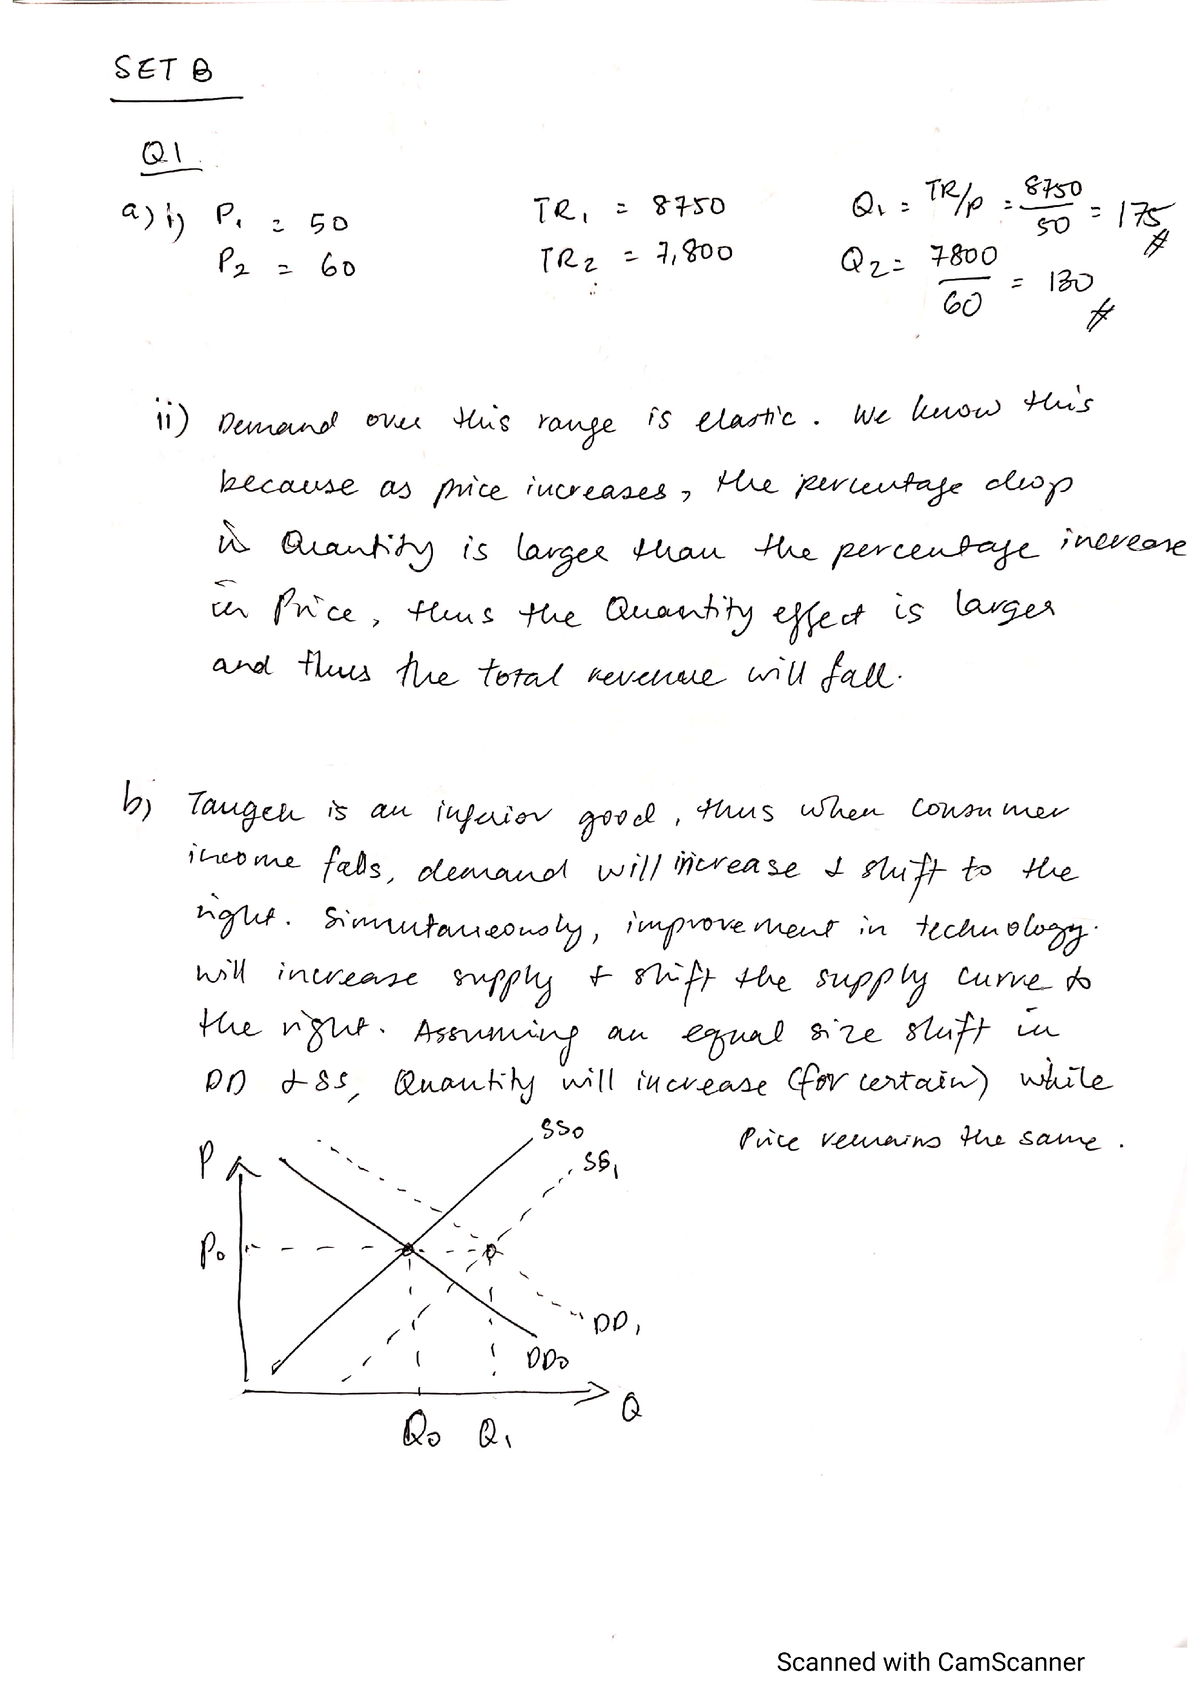 SET B
Q1
a) i) P₁ = 50 TR₁ = 8750 Q₁ = TR/P = 8750/50 = 175 #
P₂ = 60 TR₂ = 7,800 Q₂ = 7800/60 = 130 #
ii) Demand over this range is elastic. We know this
because as price increases, the percentage drop
in Quantity is larger than the percentage increase
in Price, thus the Quantity effect is larger
and thus the total revenue will fall.
b) is an inferior good, thus when consumer
income falls, demand will increase & shift to the
right. Simultaneously, improvement in technology.
will increase supply & shift the supply curve to
the right. Assuming an equal size shift in
DD & SS, Quantity will increase (for certain) while
Price remains the same.
SS₀
SS₁
P
P₀
DD₁
DD₀
Q
Q₀ Q₁
Scanned with CamScanner